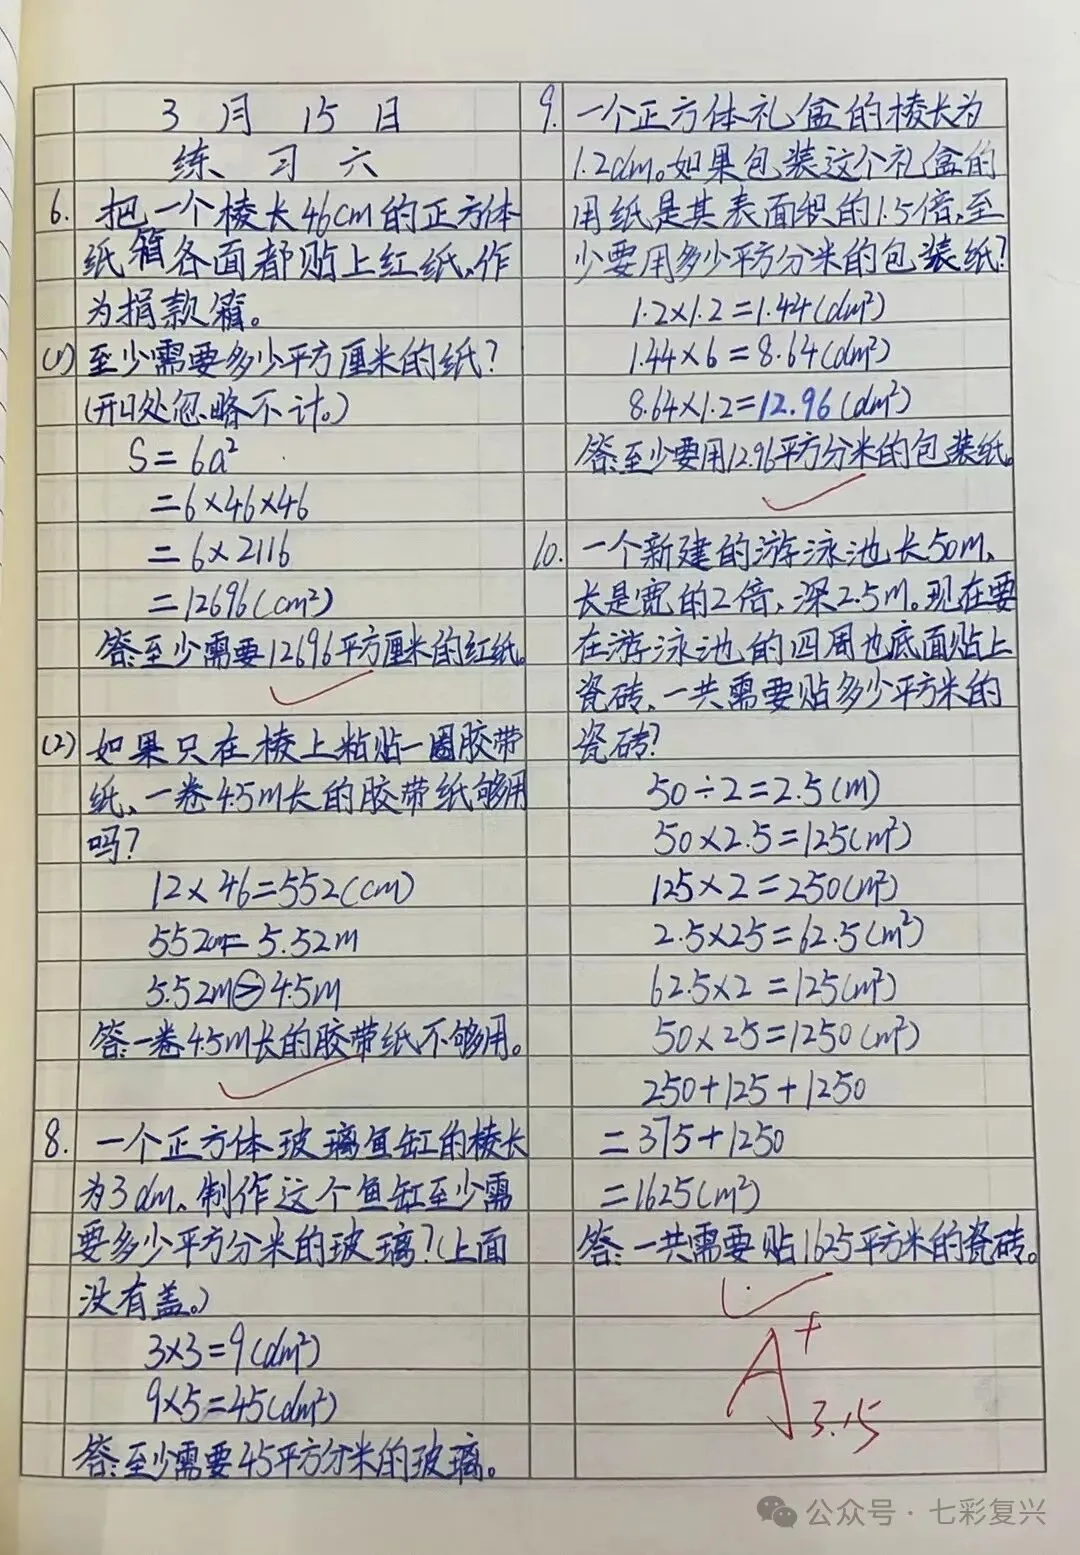 3月15日
练习六
6. 把一个棱长46cm的正方体
纸箱各面都贴上红纸、作
为捐款箱。
(1) 至少需要多少平方厘米的纸?
(开口处忽略不计。)
S=6a²
=6×46×46
=6×2116
=12696(cm²)
答:至少需要12696平方厘米的红纸。
(2) 如果只在棱上粘贴一圈胶带
纸、一卷4.5m长的胶带纸够用
吗?
12×46=552(cm)
552cm=5.52m
5.52m>4.5m
答:一卷4.5m长的胶带纸不够用。
8. 一个正方体玻璃鱼缸的棱长
为3dm、制作这个鱼缸至少需
要多少平方分米的玻璃?(上面
没有盖。)
3×3=9(dm²)
9×5=45(dm²)
答:至少需要45平方分米的玻璃。
9. 一个正方体礼盒的棱长为
1.2dm。如果包装这个礼盒的
用纸是其表面积的1.5倍、至
少要用多少平方分米的包装纸?
1.2×1.2=1.44(dm²)
1.44×6=8.64(dm²)
8.64×1.2=12.96(dm²)
答:至少要用12.96平方分米的包装纸。
10. 一个新建的游泳池长50m、
长是宽的2倍、深2.5m。现在要
在游泳池的四周也底面贴上
瓷砖、一共需要贴多少平方米的
瓷砖?
50÷2=2.5(m)
50×2.5=125(m²)
125×2=250(m²)
2.5×25=62.5(m²)
62.5×2=125(m²)
50×25=1250(m²)
250+125+1250
=375+1250
=1625(m²)
答:一共需要贴1625平方米的瓷砖。
A+
3.15
公众号·七彩复兴